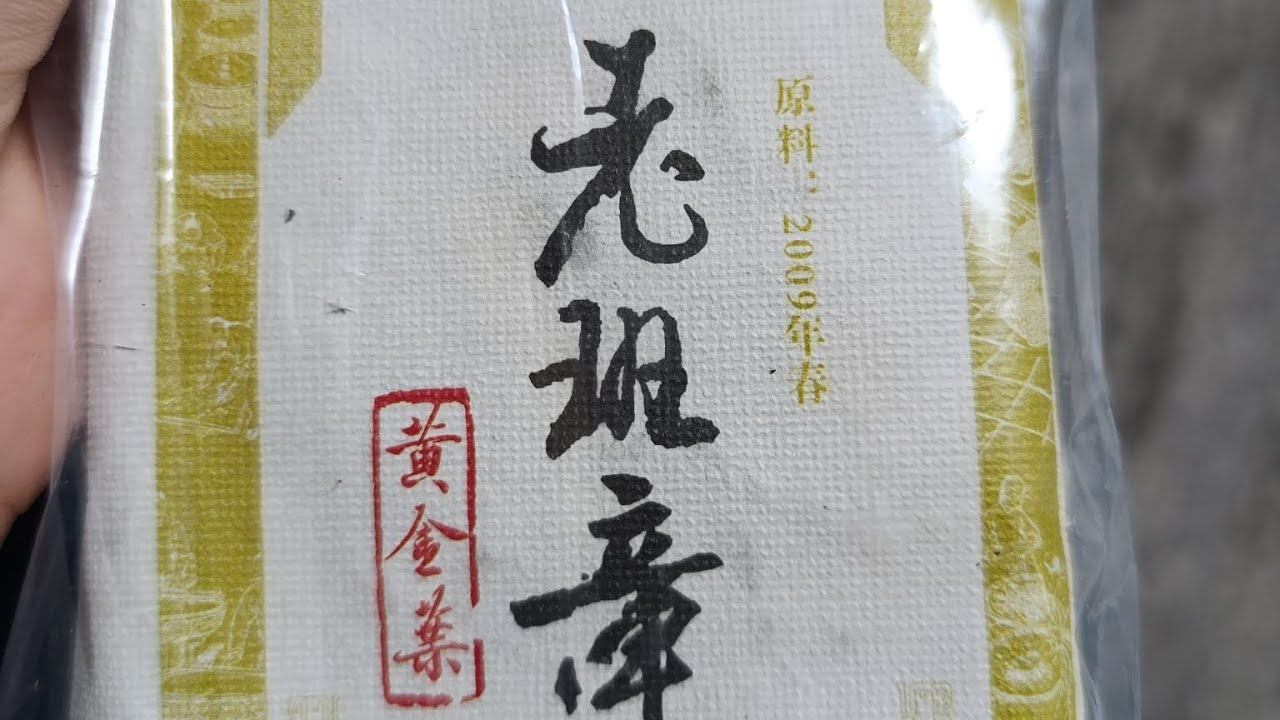 原料：2009年春
老班章
黄金葉